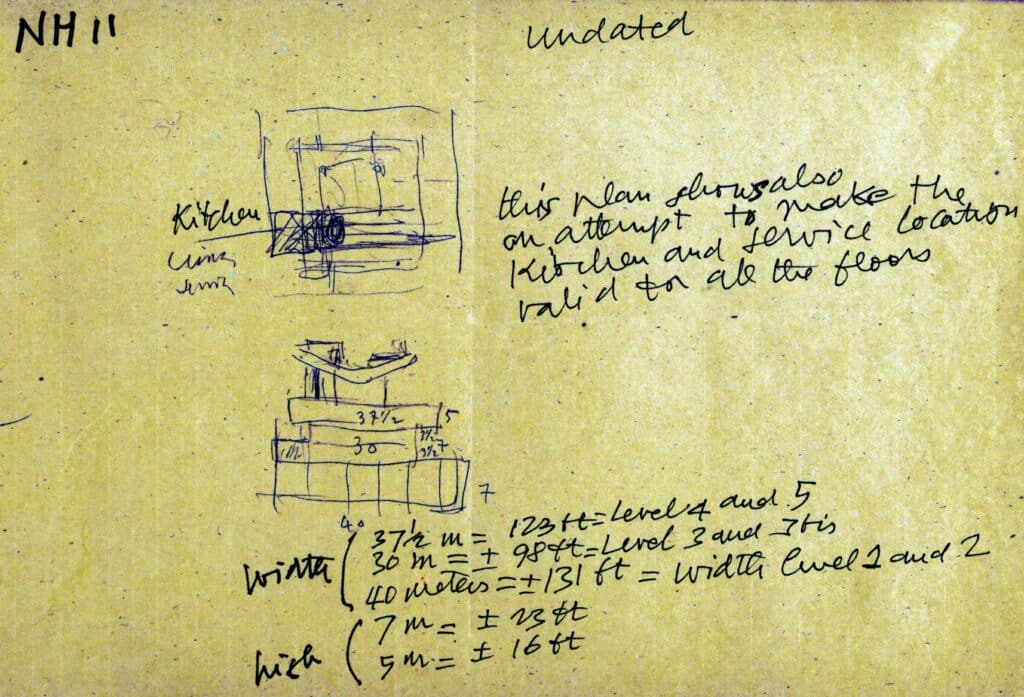 NH 11
undated
this plan shows also
an attempt to make the
Kitchen and service location
valid for all the floors
Kitchen
37½
5
30
3½
3½
7
7
40
width
37½ m = 123 ft = Level 4 and 5
30 m = ± 98 ft = Level 3 and 3bis
40 meters = ± 131 ft = width level 1 and 2
high
7 m = ± 23 ft
5 m = ± 16 ft